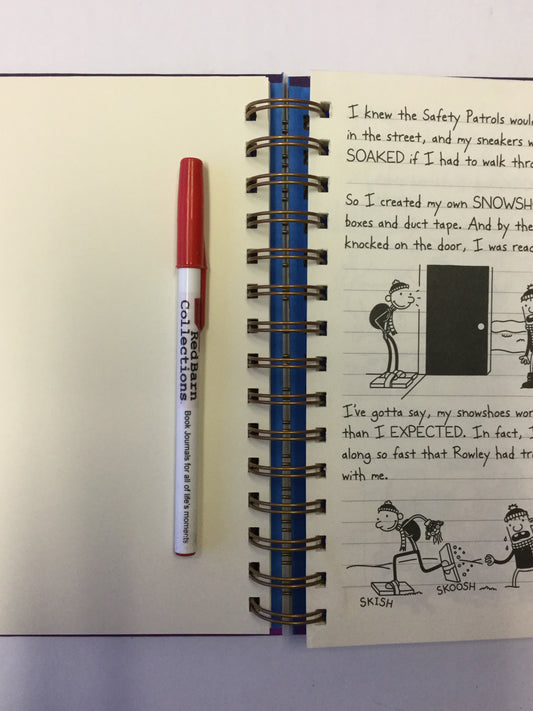 Red Barn
Collections.
Book Journals for all of life's moments
I knew the Safety Patrols
in the street, and my sneakers
SOAKED if I had to walk
So I created my own
boxes and duct tape. And by the
knocked on the door, I was
I've gotta say, my snowshoes
than I EXPECTED. In fact, I
along so fast that Rowley had
with me.
SKISH
SKOOSH